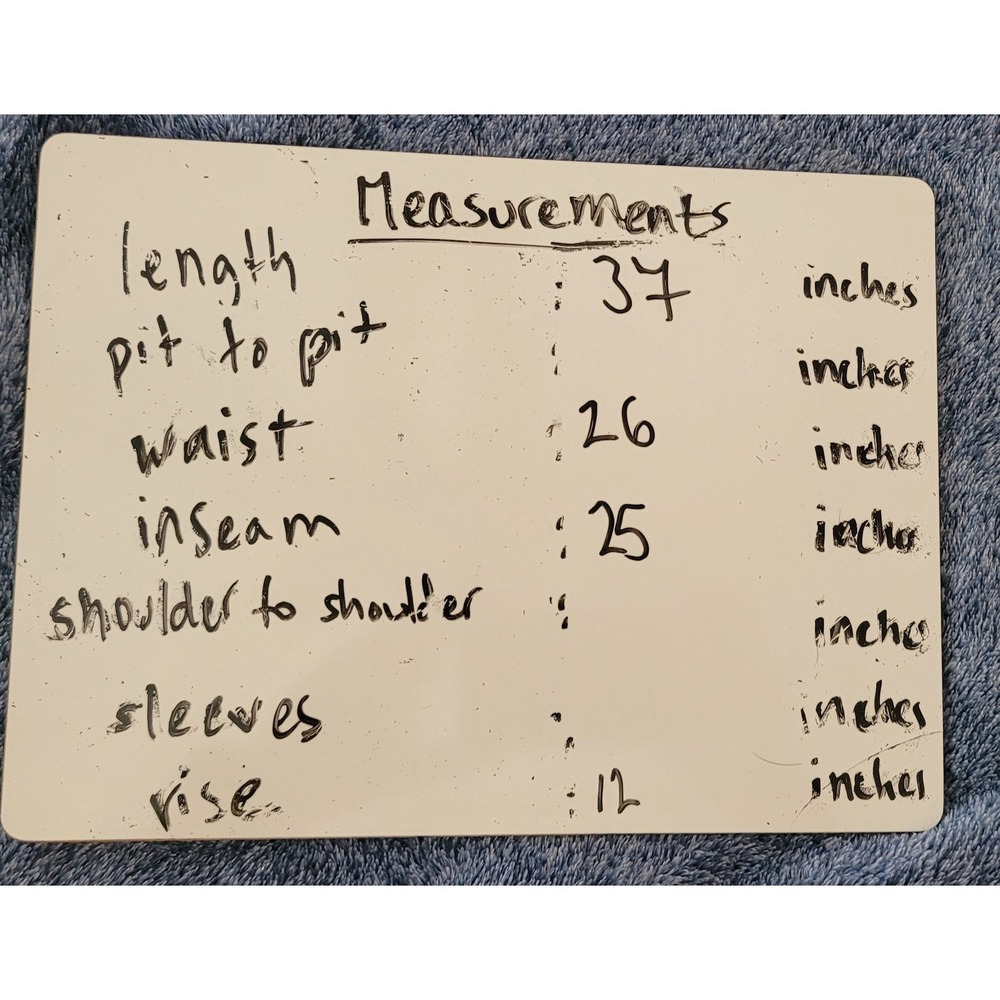 Measurements
length : 37 inches
pit to pit : inches
waist : 26 inches
inseam : 25 inches
shoulder to shoulder : inches
sleeves : inches
rise : 12 inches